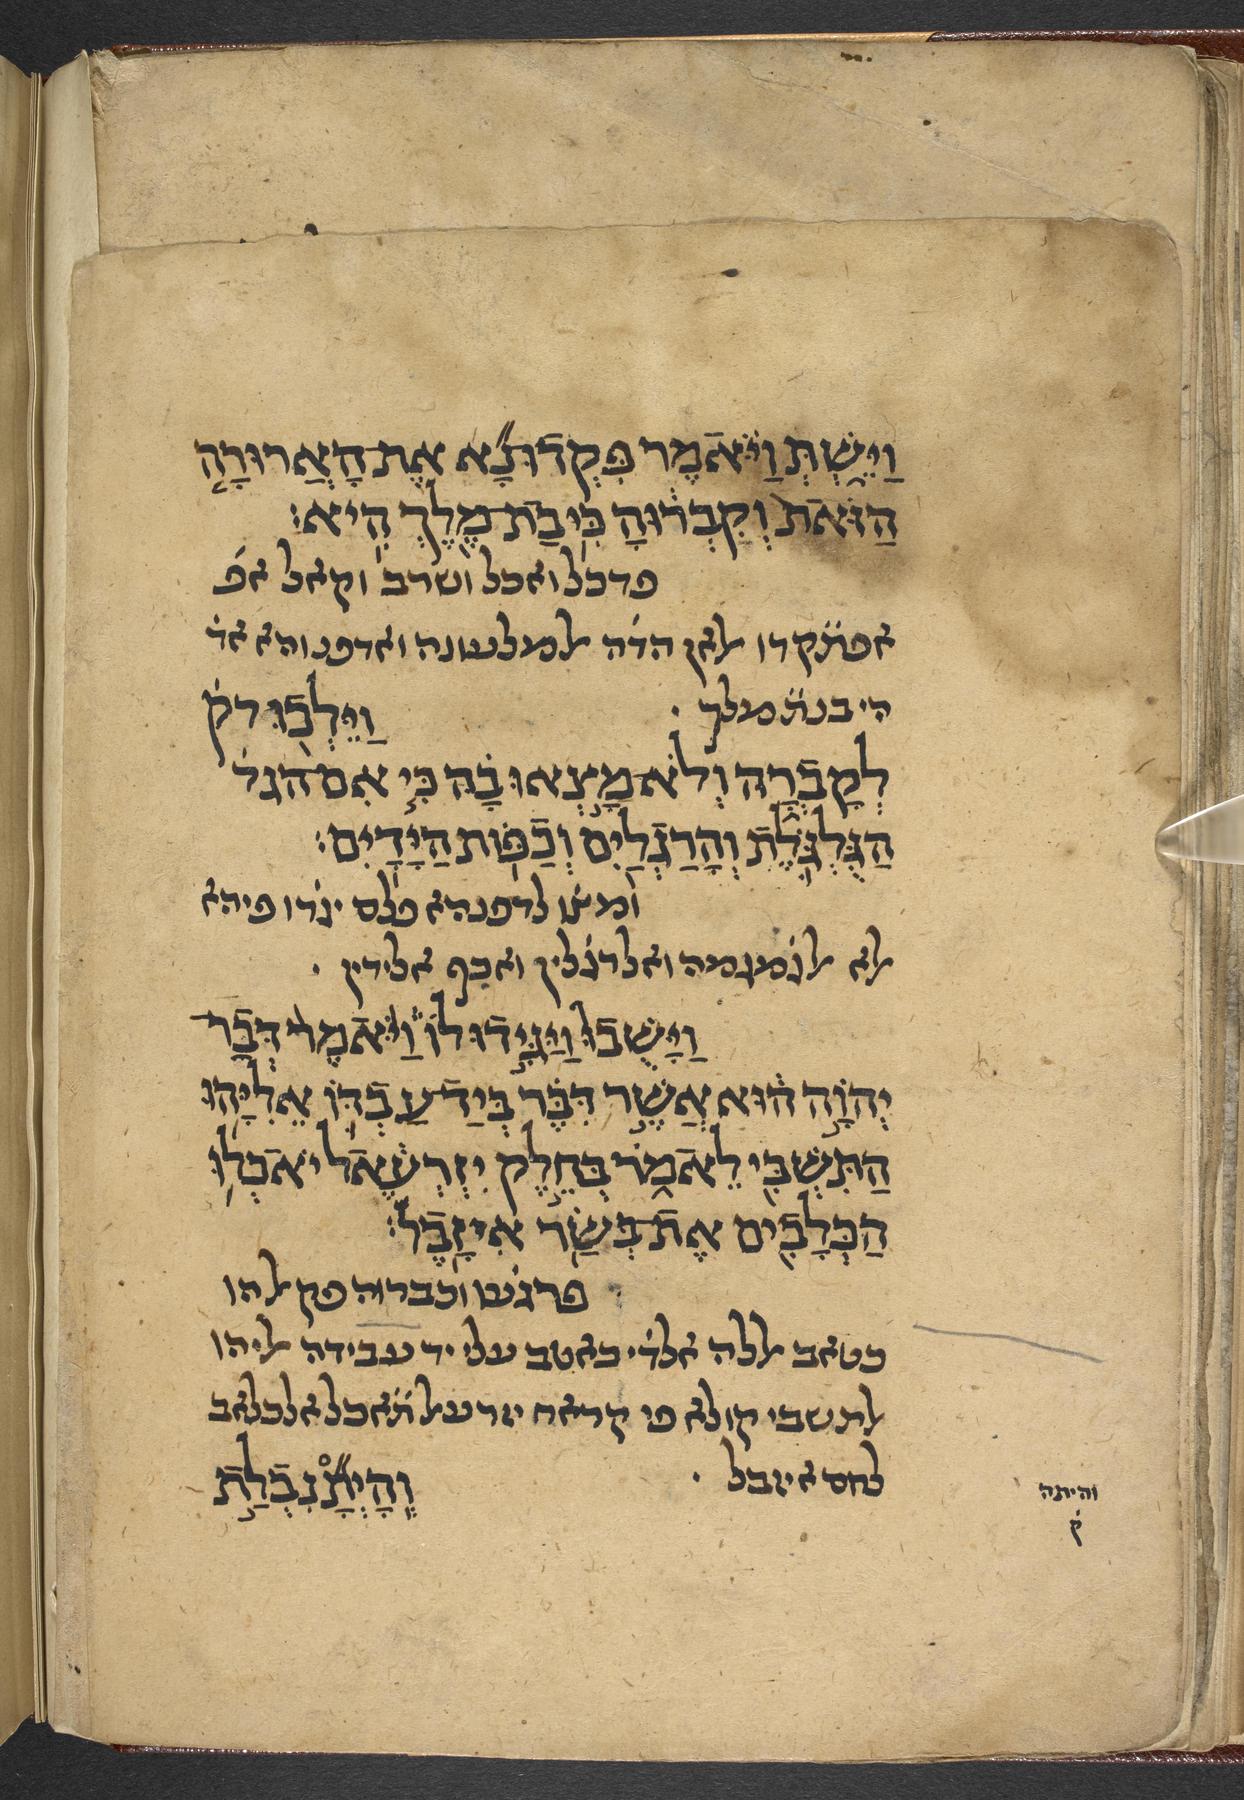 וַיֵּ֑שְׁתְּ וַיֹּ֗אמֶר פִּקְדוּ־נָ֞א אֶת־הָאֲרוּרָ֤ה
הַזֹּאת֙ וְקִבְר֔וּהָ כִּ֥י בַת־מֶ֖לֶךְ הִֽיא׃
פדכׄל ואכל ושרב וקאל אפ
אפתׄקדו לאן הדׄה למלעונה ואדפנוהא אדׄ
הי בנתׄ מלך ·
וַיֵּלְכ֖וּ לק
לְקָבְרָ֑הּ וְלֹא־מָ֣צְאוּ בָ֗הּ כִּ֧י אִם־הגל
הַגֻּלְגֹּ֛לֶת וְהָרַגְלַ֖יִם וְכַפּ֥וֹת הַיָּדָֽיִם׃
ומצׄו לדפנהא פלם יגׄדו פיהא
לא לגׄמגמה ואלרגׄלין ואכף אלידין ·
וַיָּשֻׁבוּ֮ וַיַּגִּ֣ידוּ לוֹ֒ וַיֹּ֙אמֶר֙ דְּבַר־
יְהוָ֣ה ה֔וּא אֲשֶׁ֣ר דִּבֶּ֗ר בְּיַד־עַבְדּ֛וֹ אֵלִיָּ֥הוּ
הַתִּשְׁבִּ֖י לֵאמֹ֑ר בְּחֵ֣לֶק יִזְרְעֶ֔אל יֹאכְל֥וּ
הַכְּלָבִ֖ים אֶת־בְּשַׂ֥ר אִיזָֽבֶל׃
פרגׄעו וכׄברוה פק להו
כטאב ללה אלדׄי כאטב עלי יד עבידה ליהו
לתשבי קולא פי קראח יזרעל תׄאכל אלכלאב
לחם איזבל ·
וְֽהָיְתָ֞ נִבְלַ֣ת
והיתה
ק